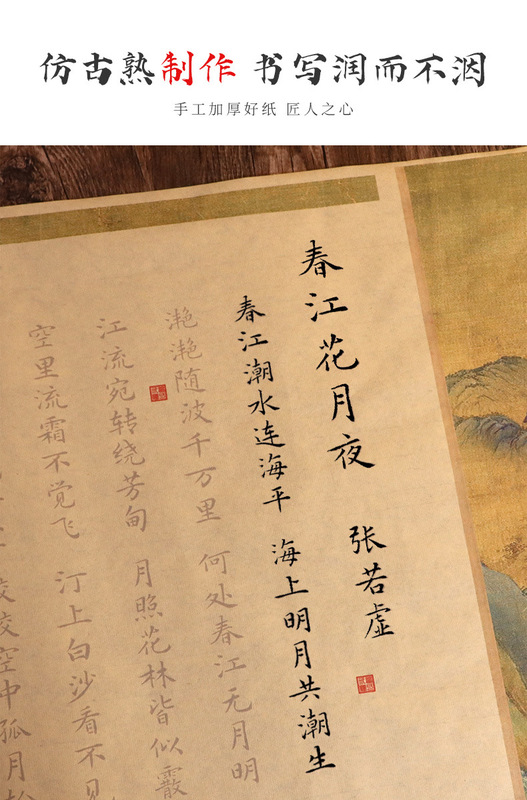 仿古熟制作 书写润而不洇
手工加厚好纸 匠人之心
春江花月夜 张若虚
春江潮水连海平 海上明月共潮生
滟滟随波千万里 何处春江无月明
江流宛转绕芳甸 月照花林皆似霰
空里流霜不觉飞 汀上白沙看不见
皎空中孤月